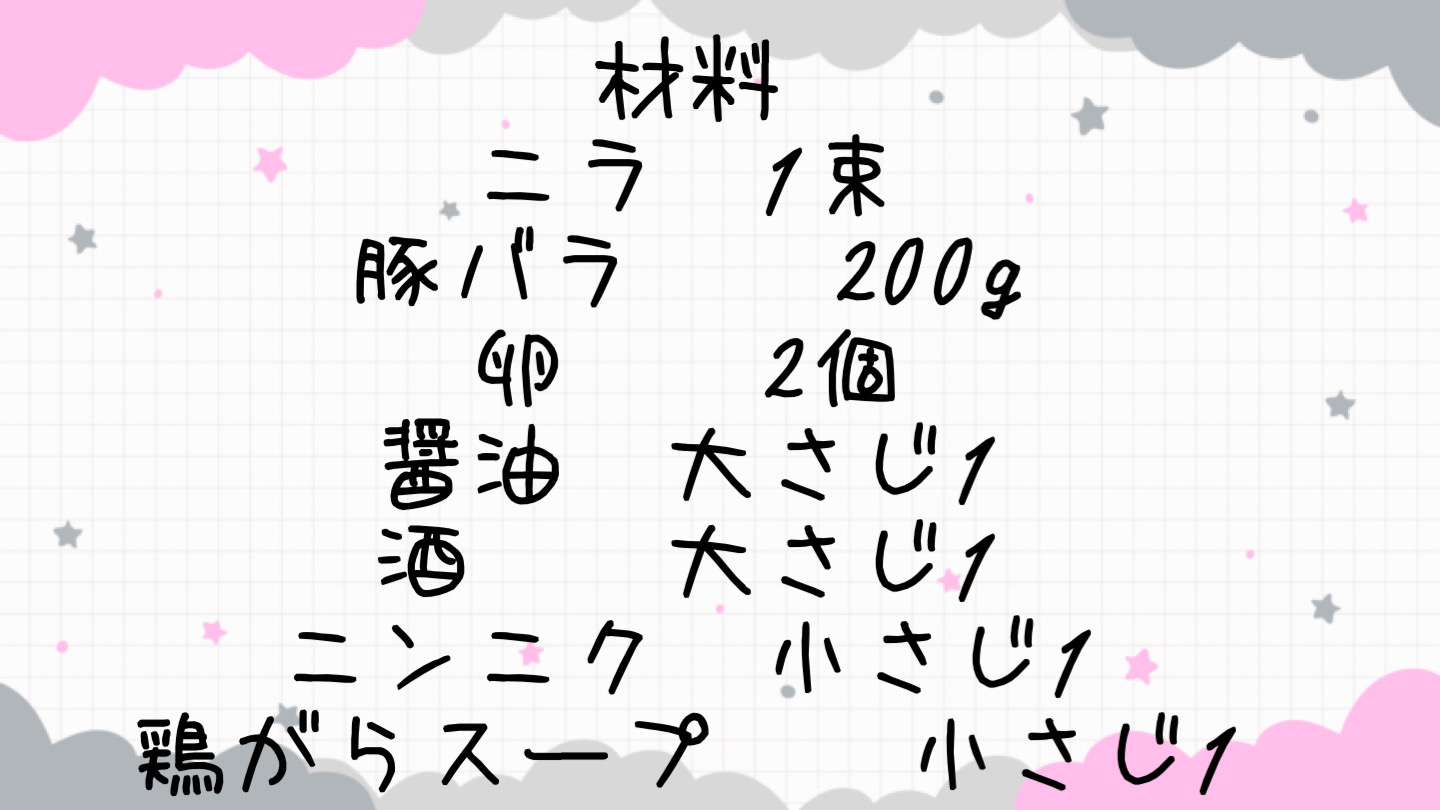 材料
ニラ 1束
豚バラ 200g
卵 2個
醤油 大さじ1
酒 大さじ1
ニンニク 小さじ1
鶏がらスープ 小さじ1